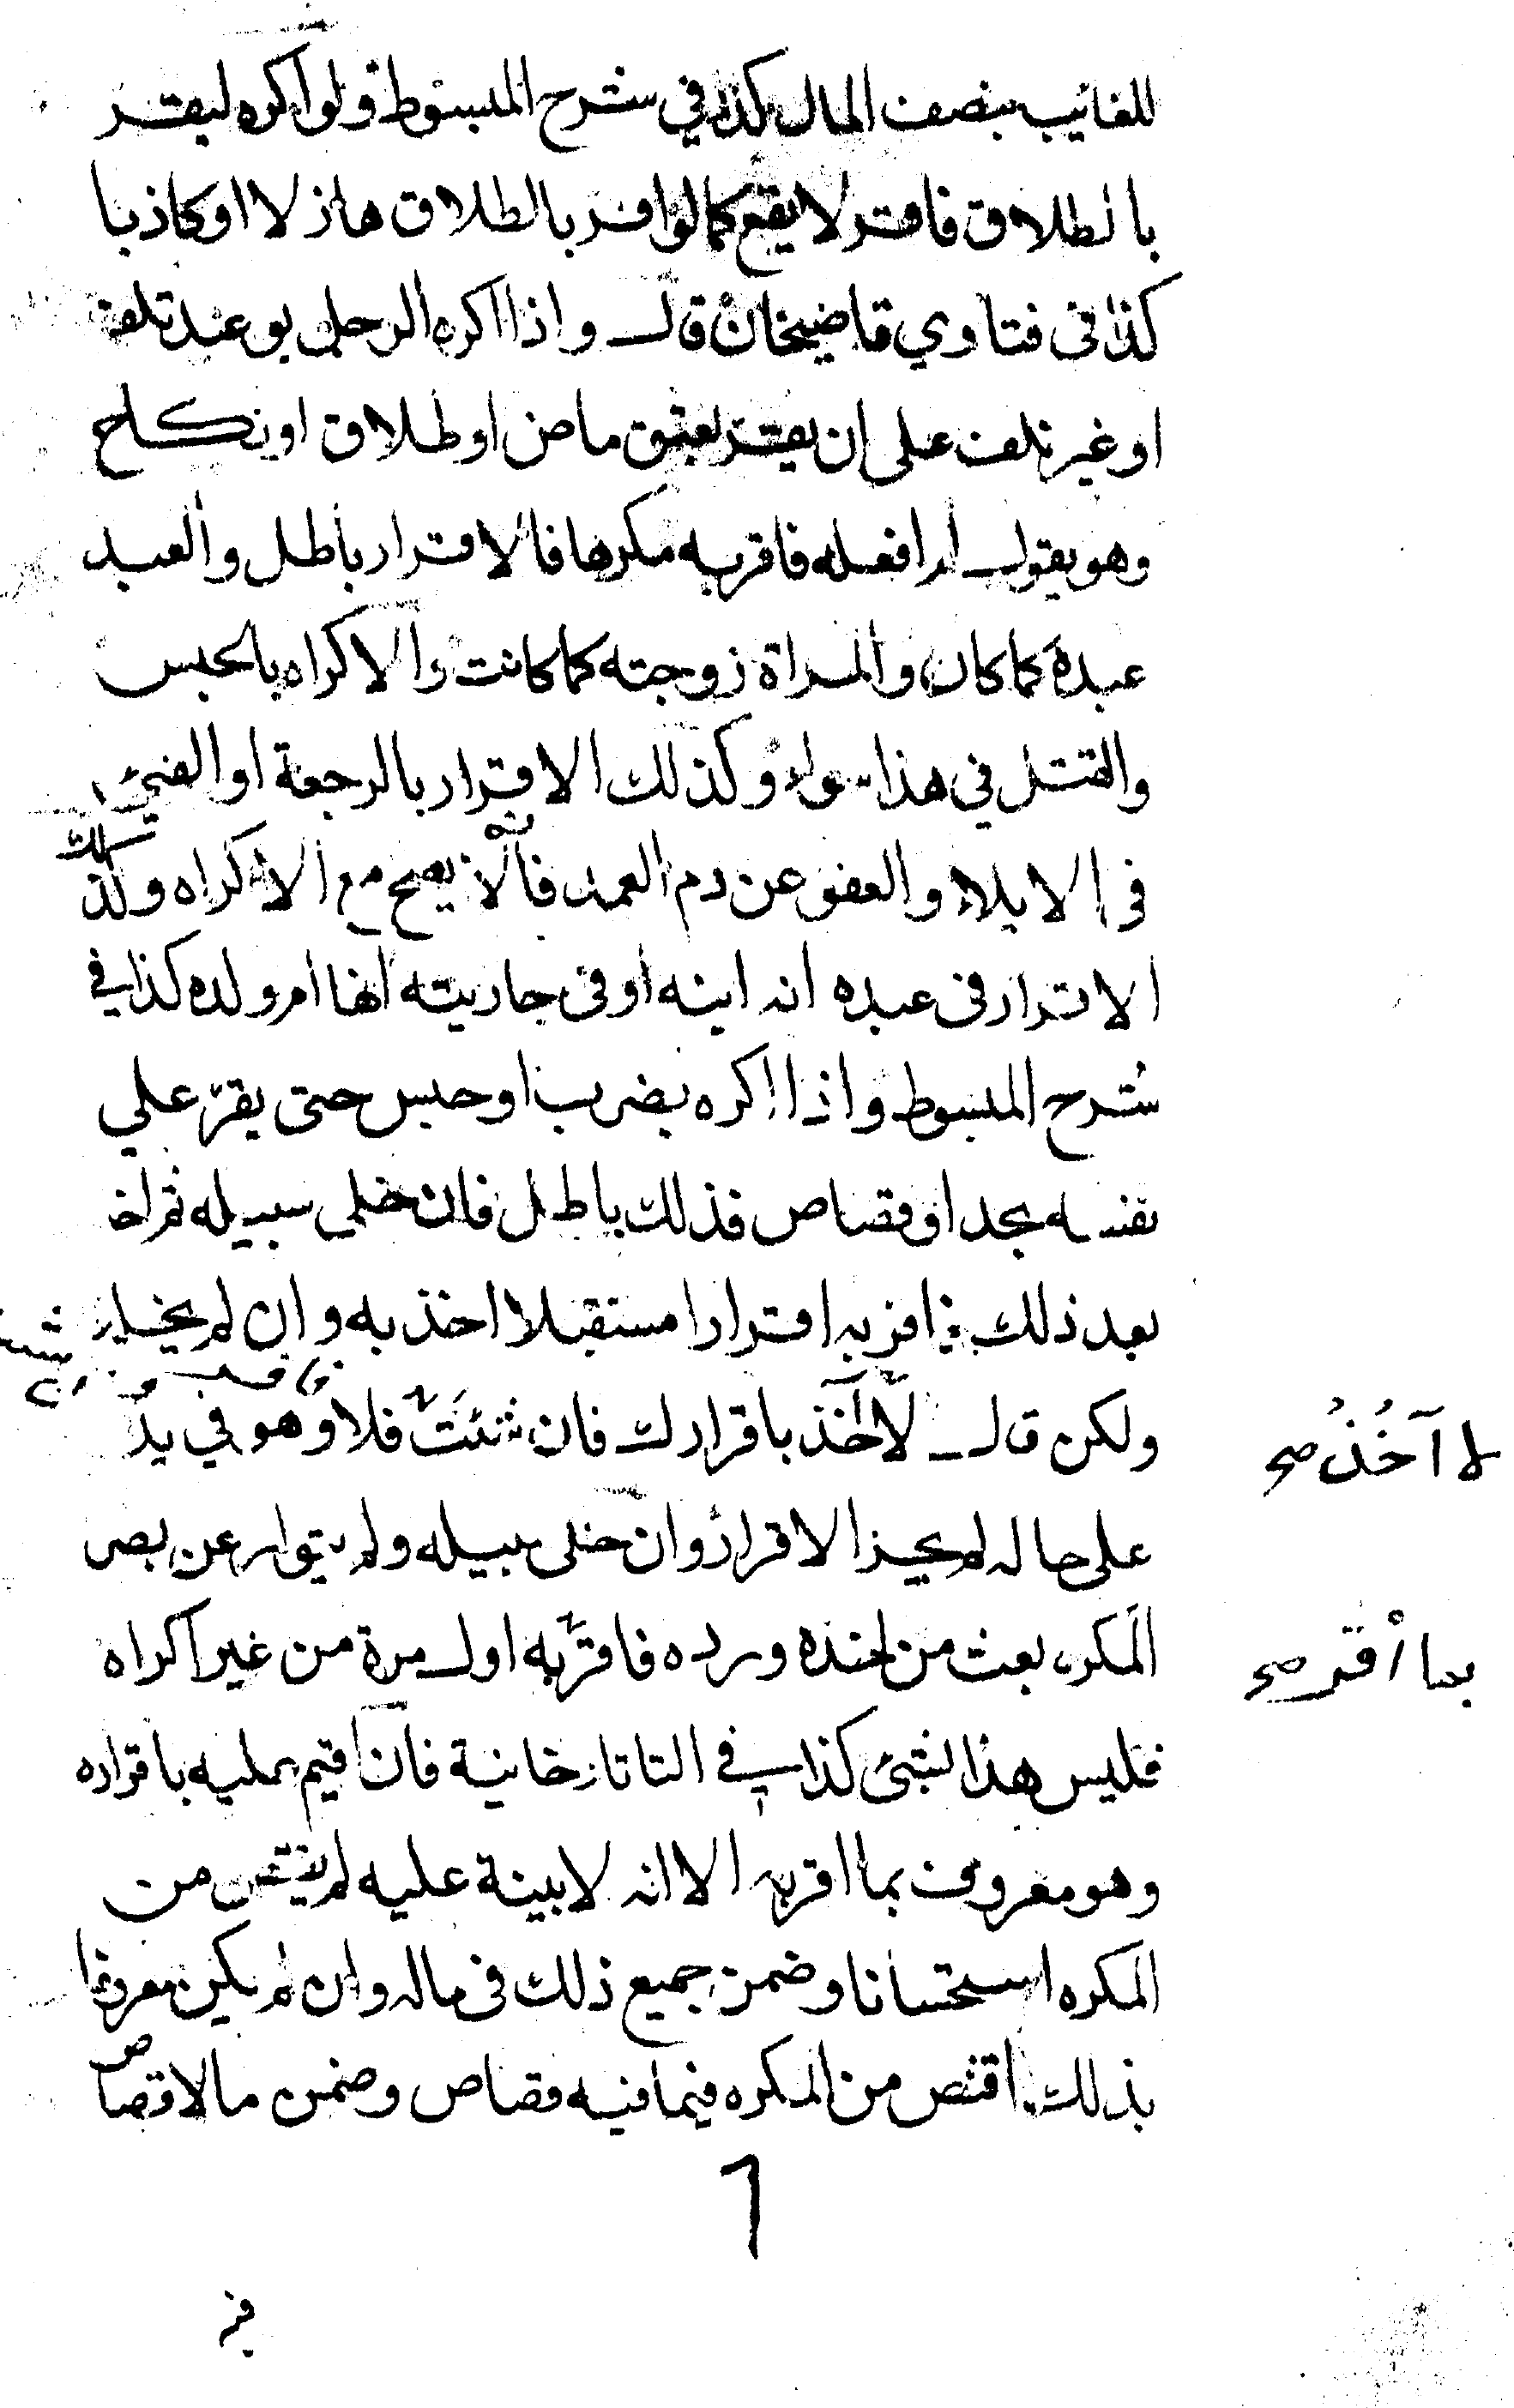 للغائب بنصف المال كذا في شرح المبسوط ولو اكره ليقر
بالطلاق فاقر لا يقع كما لو اقر بالطلاق هازلا او كاذبا
كذا في فتاوي قاضيخان قال واذا اكره الرجل بوعيد تلف
او غير تلف على ان يقر بعتق ماض او طلاق او نكاح
وهو يقول لم افعله فاقر به مكرها فالاقرار باطل والعبد
عبده كما كان والمراة زوجته كما كانت والاكراه بالحبس
والقتل في هذا سواء وكذلك الاقرار بالرجعة او الفيئ
في الايلاء والعفو عن دم العمد فانه لا يصح مع الاكراه وكذلك
الاقرار في عبده انه ابنه او في جاريته انها ام ولده كذا في
شرح المبسوط واذا اكره بضرب او حبس حتى يقر علي
نفسه بحد او قصاص فذلك باطل فان خلى سبيله ثم اخذ
بعد ذلك فاقر به اقرارا مستقبلا اخذ به وان لم يخل
ولكن قال لا آخذ باقرارك فان شئت فلا وهو في يد
لا آخُذُ صح
على حاله لم يجز الاقرار وان خلى سبيله ولم يتوار عن بصر
المكره بعث من اخذه ورده فاقر به اول مرة من غير اكراه
بما أقر صح
فليس هذا بشئ كذا في التاتارخانية فان اقيم عليه باقراره
وهو معروف بما اقر به الا انه لا بينة عليه لم يقتص من
المكره استحسانا وضمن جميع ذلك في ماله وان لم يكن معروفا
بذلك اقتص من المكره فيما فيه قصاص وضمن ما لا قصاص
٦